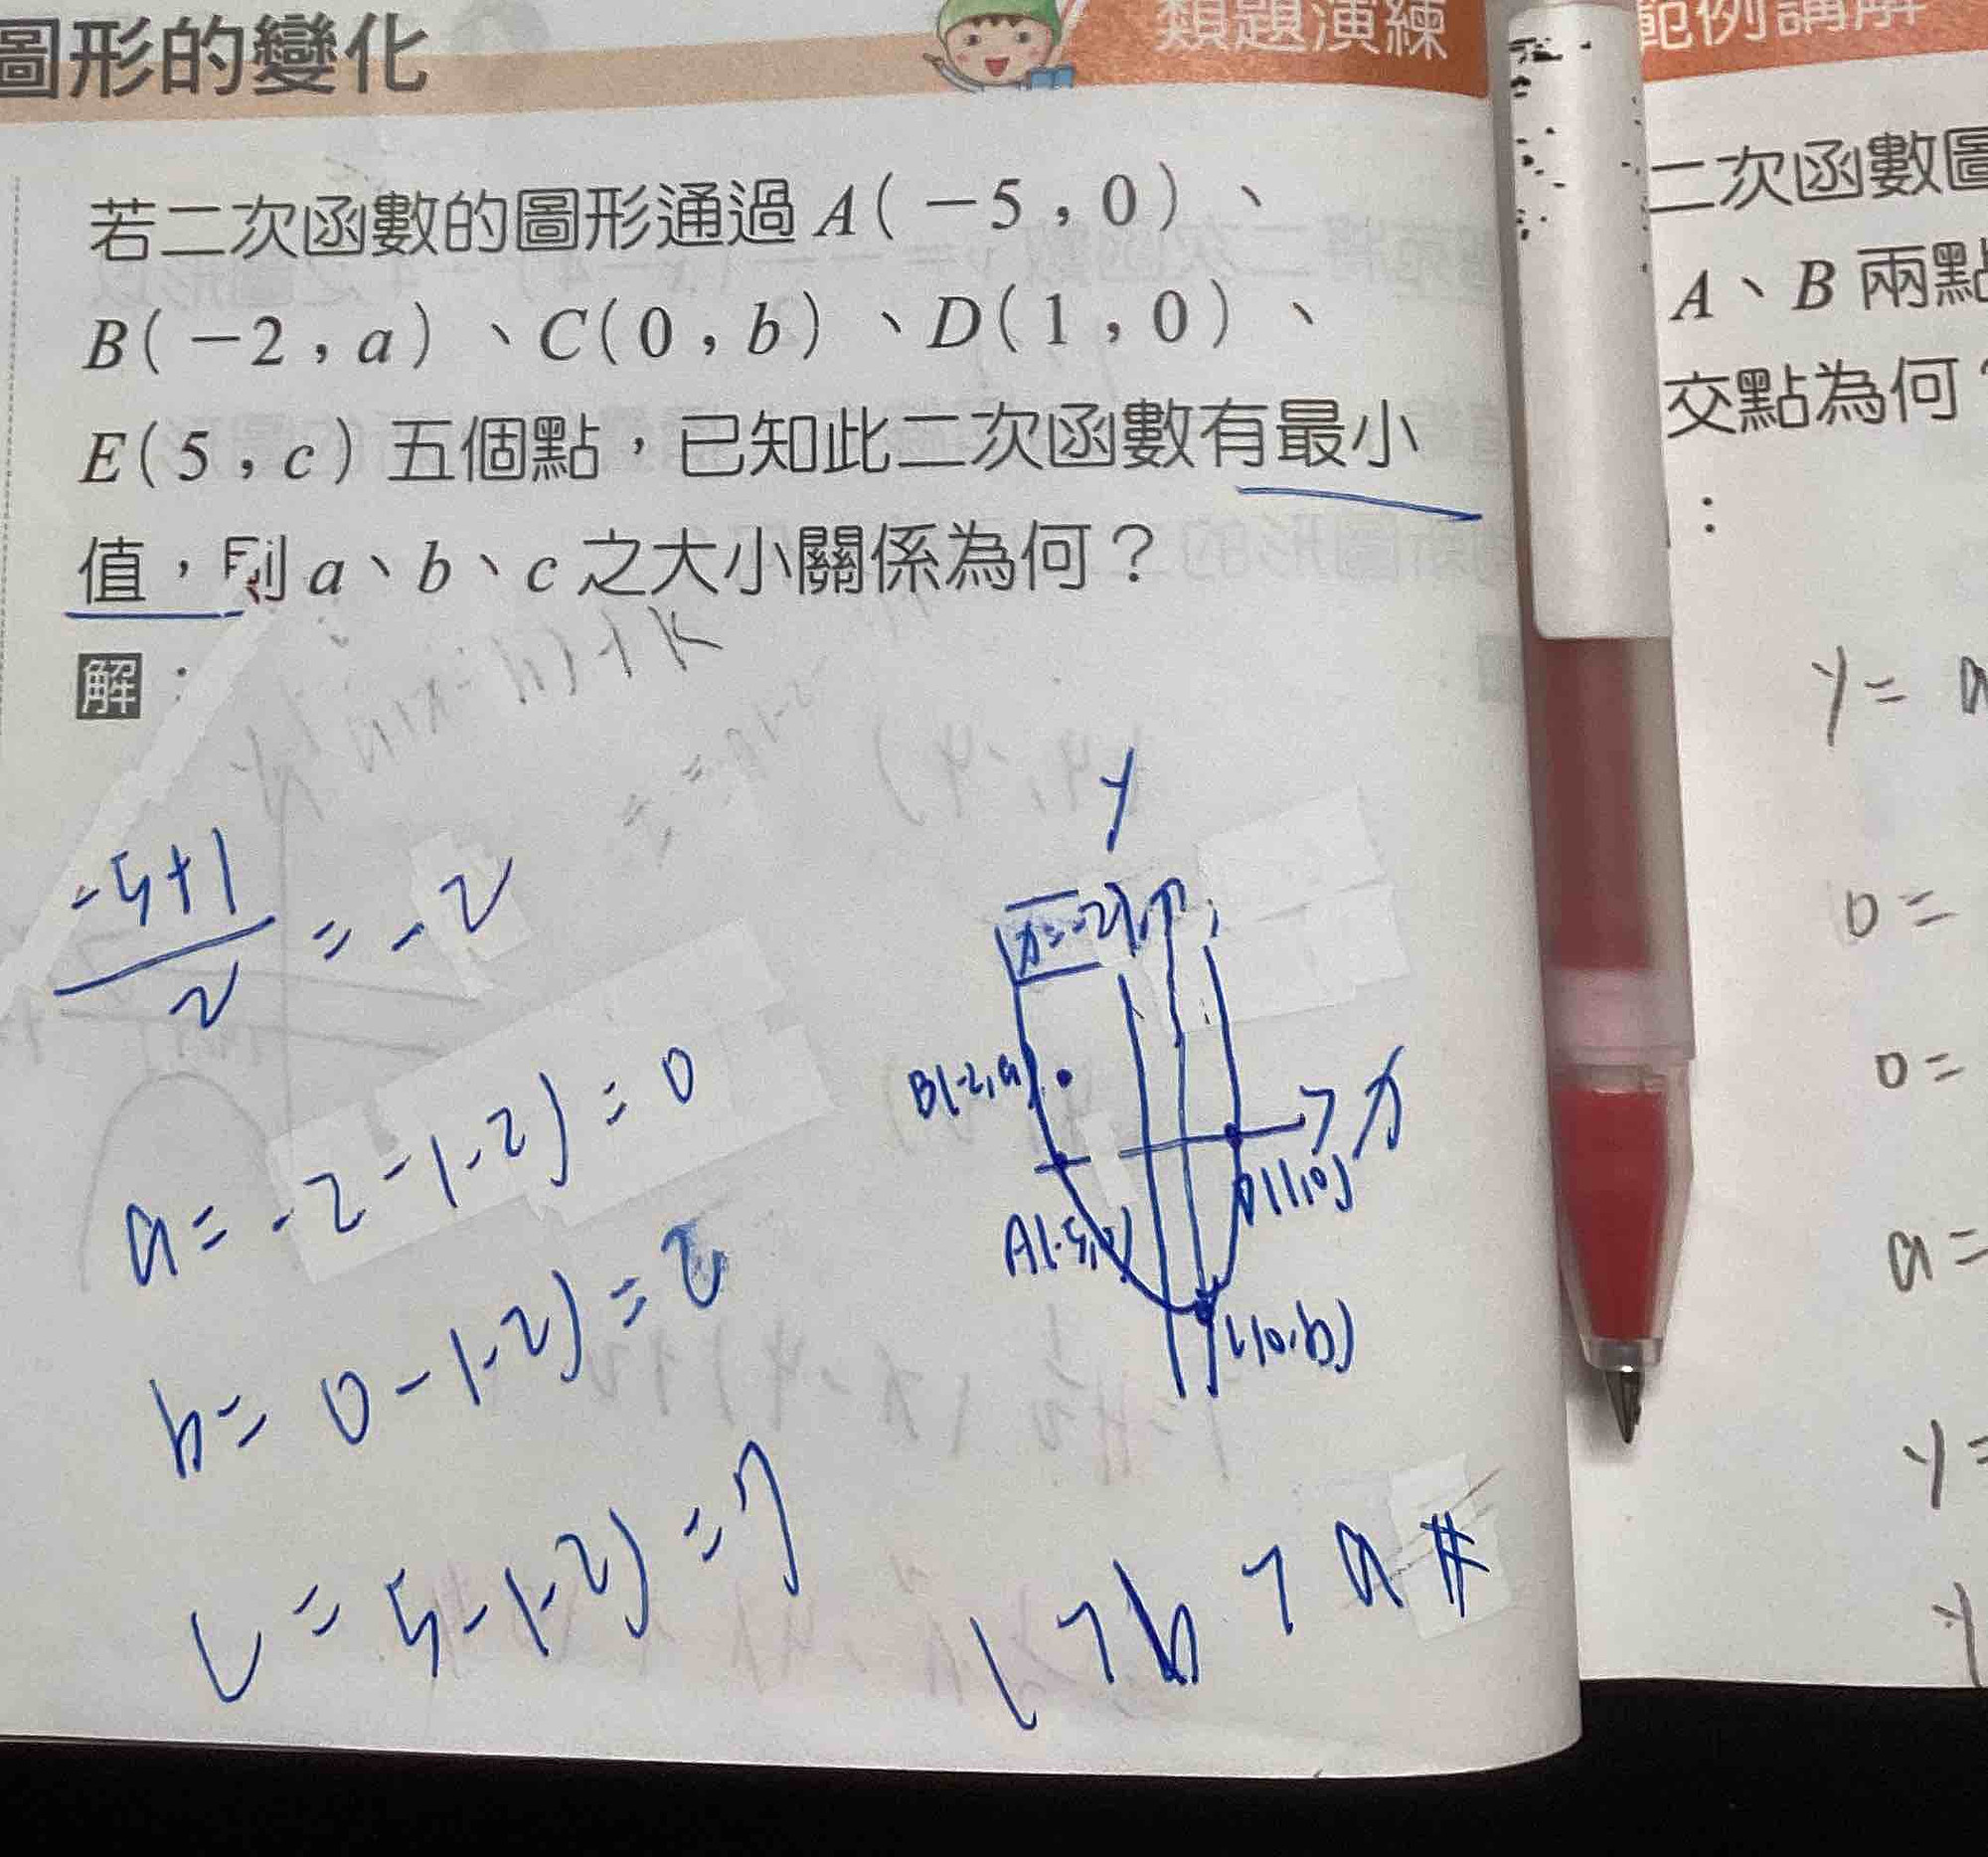 圖形的變化
類題演練
範例講解
若二次函數的圖形通過 A(-5,0)、
B(-2,a)、C(0,b)、D(1,0)、
E(5,c)五個點,已知此二次函數有最小
值,則 a、b、c 之大小關係為何?
解:
-5+1
/2 = -2
a = -2-(-2) = 0
b = 0-(-2) = 2
c = 5-(-2) = 7
y
x=-2
B(-2,a)
x
D(1,0)
C(0,b)
c > b > a #
二次函數圖
A、B 兩點
交點為何?
:
y = a
0 =
0 =
a =
y =
y